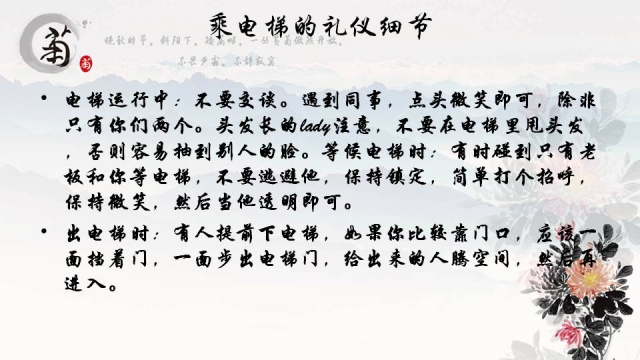 乘电梯的礼仪细节
菊
晚秋时节，斜阳下，
不畏严霜，不辞寂寞
• 电梯运行中：不要交谈。遇到同事，点头微笑即可，除非
只有你们两个。头发长的lady注意，不要在电梯里甩头发
，否则容易抽到别人的脸。等候电梯时：有时碰到只有老
板和你等电梯，不要逃避他，保持镇定，简单打个招呼，
保持微笑，然后当他透明即可。
• 出电梯时：有人提前下电梯，如果你比较靠门口，应该一
面挡着门，一面步出电梯门，给出来的人腾空间，然后再
进入。